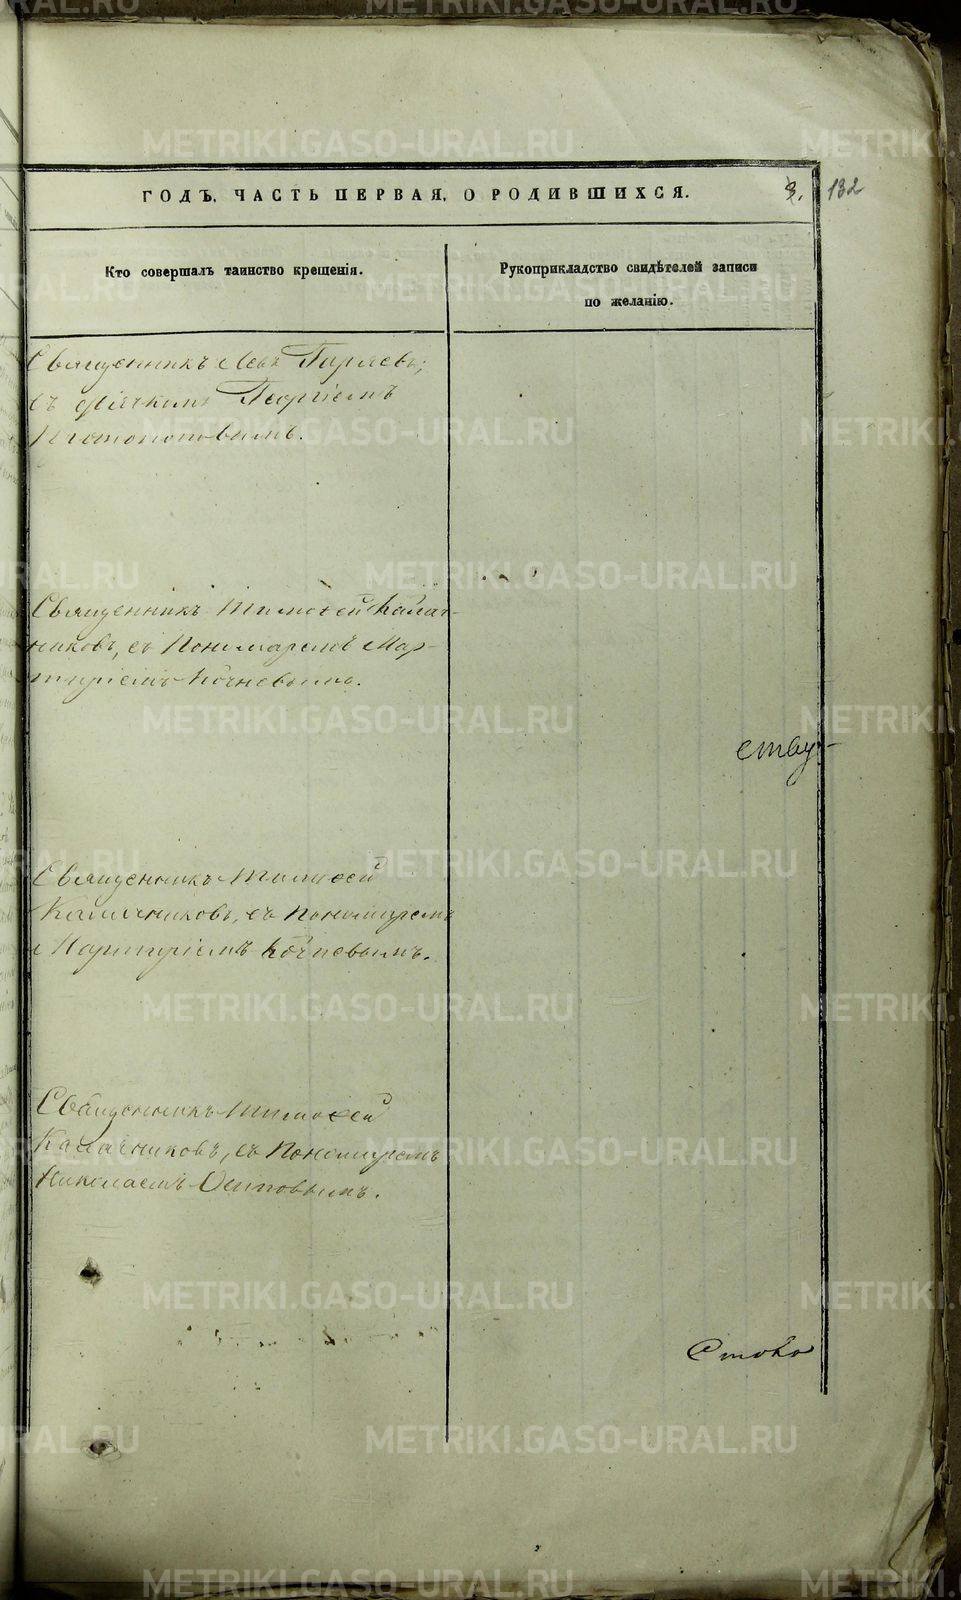 METRIKI.GASO-URAL.RU
ГОДЪ. ЧАСТЬ ПЕРВАЯ, О РОДИВШИХСЯ.
3. 132
Кто совершалъ таинство крещенія.
Рукоприкладство свидѣтелей записи
по желанію.
Священникъ Левъ Гиряевъ;
съ Георгіемъ
Священникъ Тимоѳей Калач-
никовъ, съ Пономаремъ Мар-
тиріемъ Кочневымъ.
ству-
Священникъ Тимоѳей
Калачниковъ, съ Пономаремъ
Мартиріемъ Кочневымъ.
Священникъ Тимоѳей
Калачниковъ, съ Пономаремъ
Николаемъ Осиповымъ.